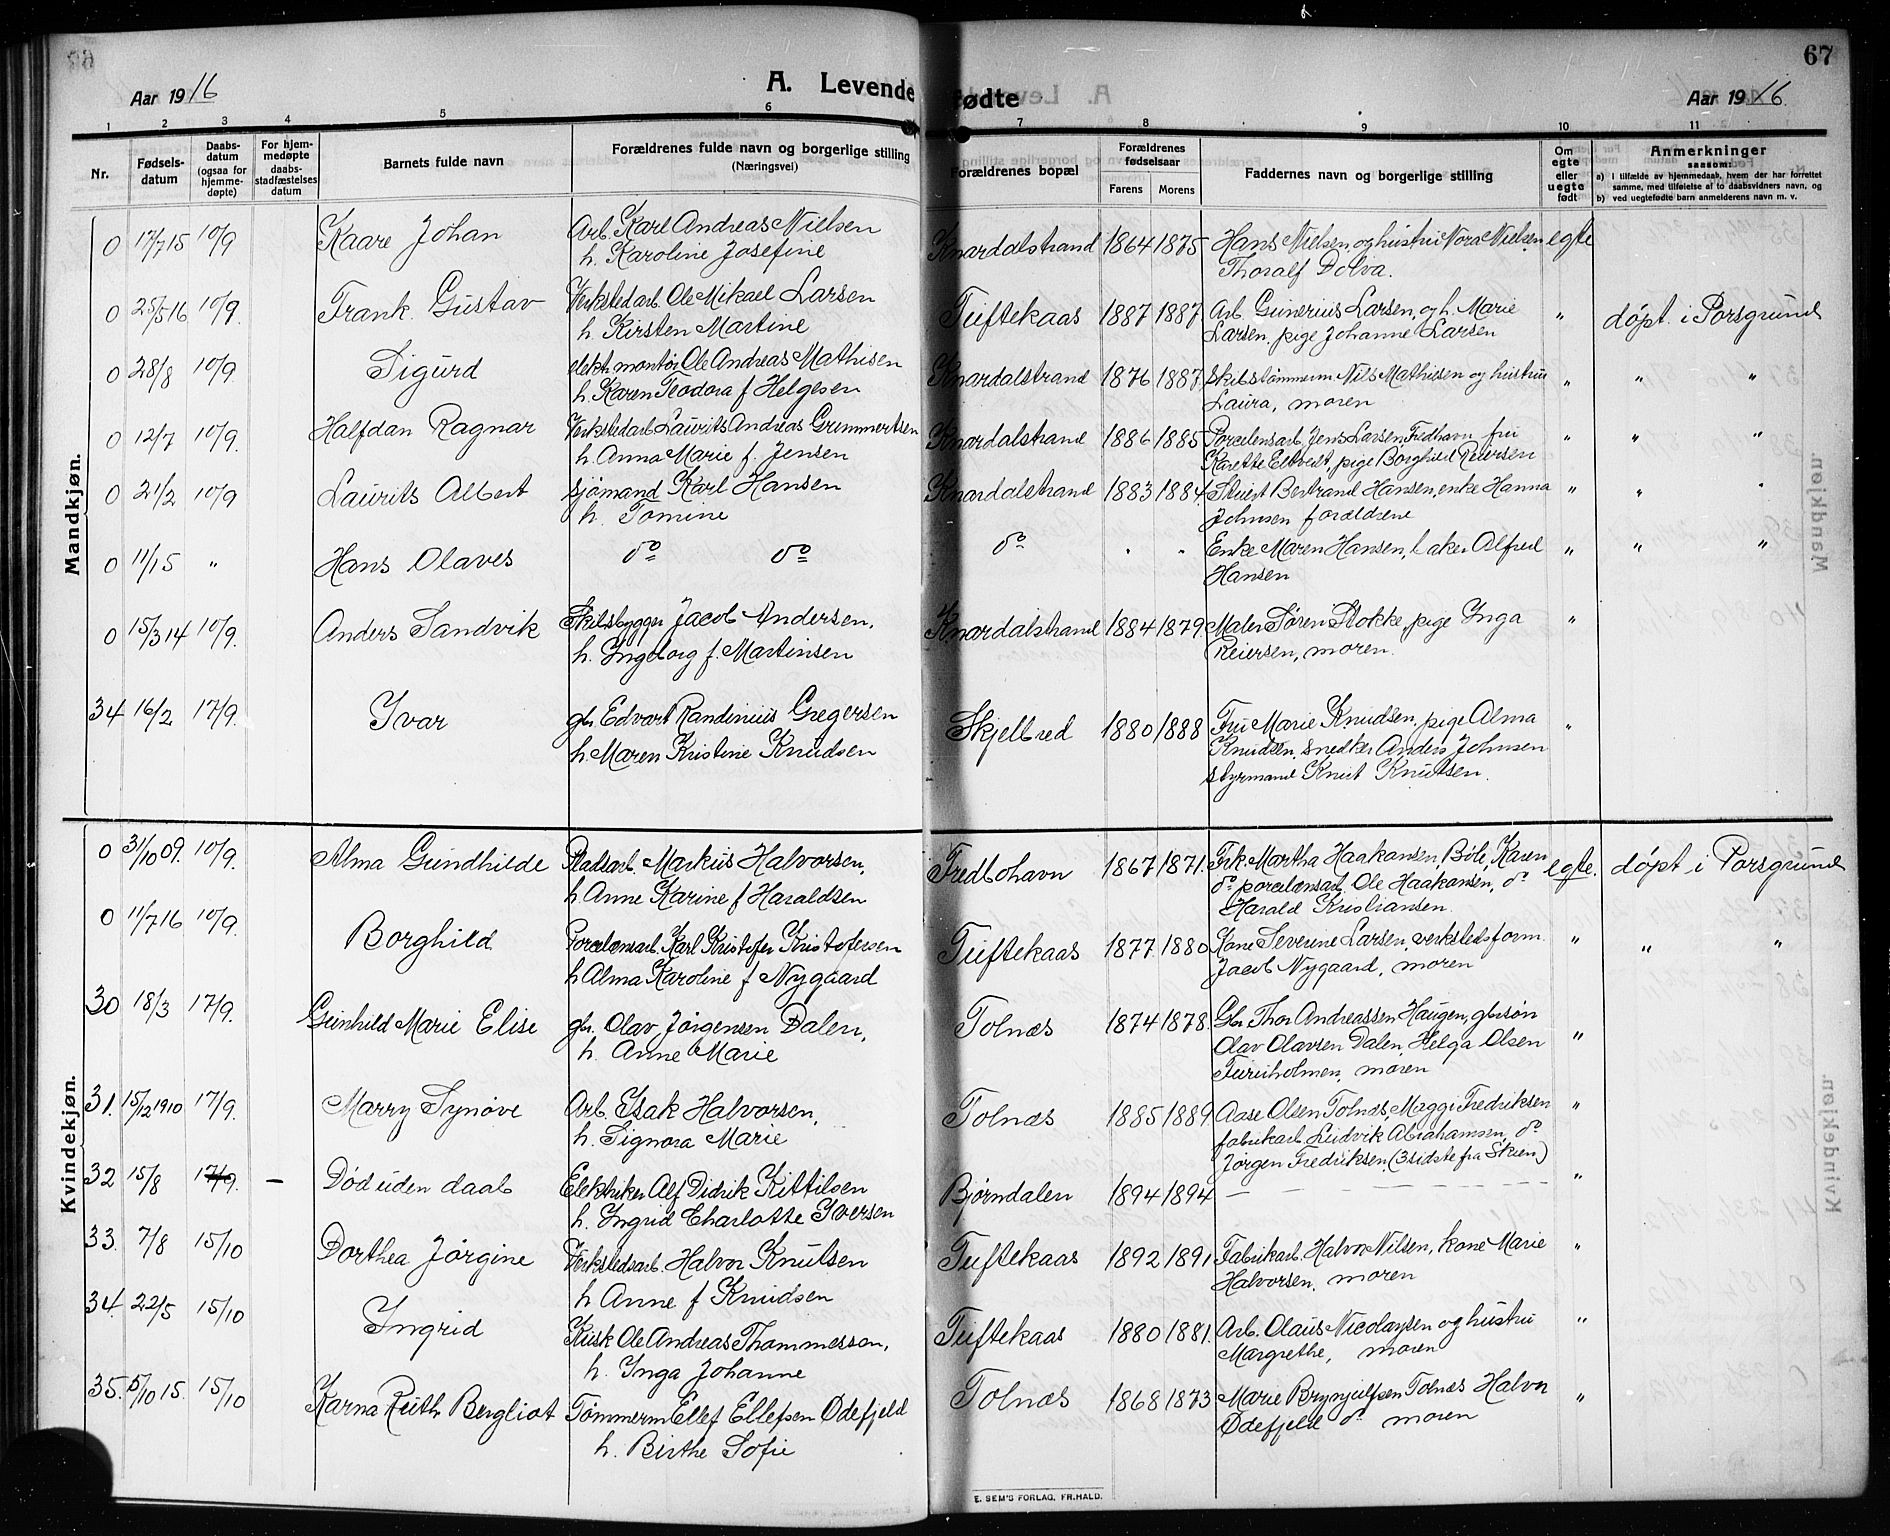 67
Aar 1916
A. Levende fødte
Aar 1916.
1 2 3 4 5 6 7 8 9 10 11
Nr.
Fødsels-
datum
Daabs-
datum
(ogsaa for
hjemme-
døpte)
For hjem-
medøpte
daabs-
stadfæstelses
datum
Barnets fulde navn
Forældrenes fulde navn og borgerlige stilling
(Næringsvei)
Forældrenes bopæl
Forældrenes
fødselsaar
Farens
Morens
Faddernes navn og borgerlige stilling
Om
egte
eller
uegte
født
Anmerkninger
saasom:
a) i tilfælde av hjemmedaab, hvem der har forrettet
samme, med tilføielse af to daabsvidners navn, og
b) ved uegtefødte barn anmelderens navn m. v.
Mandkjøn.
0 17/7 15 10/9 Kaare Johan Arb. Karl Andreas Nielsen Knardalstrand 1864 1875 Hans Nielsen og hustru Nora Nielsen egte
h. Karoline Josefine Thoralf Dolva.
0 25/5 16 10/9. Frank Gustav Verkstedarb. Ole Mikael Larsen Tuftekaas 1887 1887 Arb. Gunerius Larsen, og h. Marie " døpt i Porsgrund
h. Kirsten Martine Larsen, pige Johanne Larsen
0 28/8 10/9 Sigurd elektr. montør Ole Andreas Mathisen Knardalstrand 1876 1887 Skibstømmerm Nils Mathisen og hustru " " "
h. Karen Teodora f Helgesen Laura, moren
0 12/7 10/9. Halfdan Ragnar Verkstedarb. Laurits Andreas Gremmertsen Knardalstrand 1886 1885 Porcelensarb. Jens Larsen Fredhavn fru " " "
h. Anna Marie f. Jensen Karette Eltvedt, pige Borghild Reiersen
0 21/2 10/9 Laurits Albert sjømand Karl Hansen Knardalstrand 1883 1884. Stuert Bertrand Hansen, enke Hanna " " "
h. Tomine Johnsen forældrene
0 11/15 " Hans Olaves do do do " " Enke Maren Hansen, baker Alfred " " "
Hansen
0 15/3 14 10/9. Anders Sandvik Skibsbygger Jacob Andersen, Knardalstrand 1884 1879 Maler Søren Stokke, pige Inga "
h. Ingeborg f. Martinsen Reiersen, moren.
34 16/2 17/9. Ivar gbr. Edvart Randinius Gregersen Skjelbred 1880 1888 Fru Marie Knudsen, pige Alma "
h. Maren Kristine Knudsen Knudsen, snedker Anders Johnsen
styrmand Knut Knutsen.
Kvindekjøn.
0 31/10 09. 10/9. Alma Gundhilde Pladsarb. Markus Halvorsen, Fredbohavn 1867 1871. Frk. Martha Haakansen, Bøle, Karen egte. døpt i Porsgrund
h. Anne Karine f Haraldsen do porcelænsarb. Ole Haakansen, do
Harald Kristiansen
0 11/7 16 10/9. Borghild Porcelænsarb. Karl Kristofer Kristofersen Tuftekaas 1877 1880 Kone Severine Larsen, verkstedsform. " " "
h Alma Karoline f Nygaard Jacob Nygaard, moren
30 18/3 17/9. Gunhild Marie Elise gbr. Olav Jørgensen Dalen, Tolnæs 1874 1878. Gbr Thor Andreassen Haugen, gbrsøn "
h. Anne Marie Olav Olavsen Dalen, Helga Olsen
Furuholmen, moren
31. 15/12 1910 17/9. Marry Synøve Arb. Esak Halvorsen, Tolnæs 1885 1889. Aase Olsen Tolnæs, Maggi Fredriksen "
h. Signora Marie fabrikarb Ludvik Abrahamsen, do
Jørgen Fredriksen (3 sidste fra Skien)
32 15/8 17/9. — Død uden daab Elektriker Alf Didrik Kittilsen Bjørndalen 1894 1894 — "
h. Ingrid Charlotte Iversen
33. 7/8 15/10 Dorthea Jørgine Verkstedsarb. Halvor Knutsen Tuftekaas 1892 1891 Fabrikarb. Halvor Nilsen, kone Marie "
h Anne f Knudsen Halvorsen, moren
34. 22/5 15/10 Ingrid Kusk Ole Andreas Thommesson, Tuftekaas 1880 1881. Arb. Olaus Nicolaysen og hustru "
h. Inga Johanne Margrethe, moren
35. 5/10 15. 15/10 Karna Ruth Bergliot Tømmerm Ellef Ellefsen Ødefjeld Tolnæs 1868 1873 Marie Brynjulfsen Tolnæs Halvor "
h. Birthe Sofie Ødefjeld do moren
E. SEM'S FORLAG, FR.HALD.